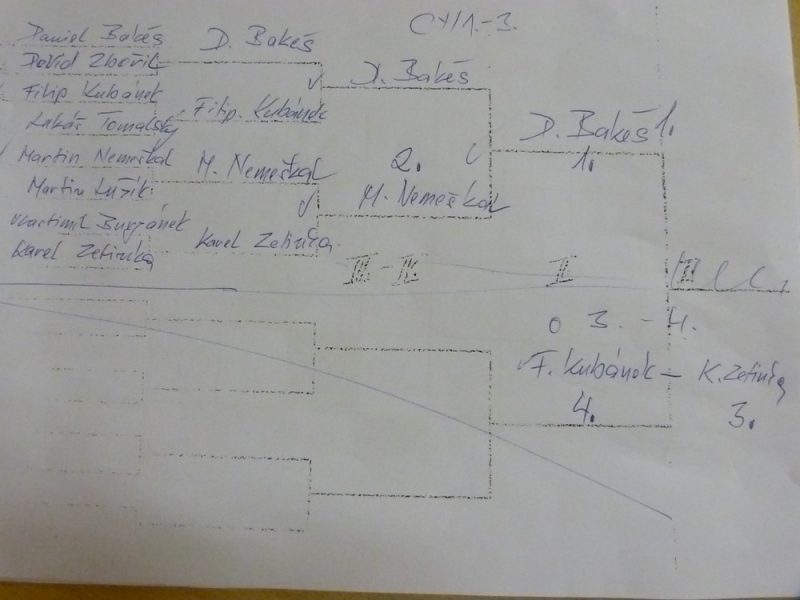 CY/1.-3.
Daniel Bakéš
David Zbořil
Filip Kubánek
Lukáš Tomalský
Martin Nemeškal
Martin Lužík
Vlastimil
Karel Zetinka
D. Bakéš
Filip. Kubánek
M. Nemeškal
Karel Zetinka
D. Bakéš
2.
M. Nemeškal
D. Bakéš 1.
1.
III - IV.
II
III
3. - 4.
F. Kubánek - K. Zetinka
4. 3.